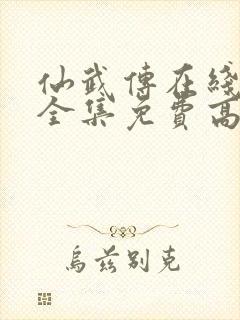 仙武傳在綫
全集免費高
烏兹别克